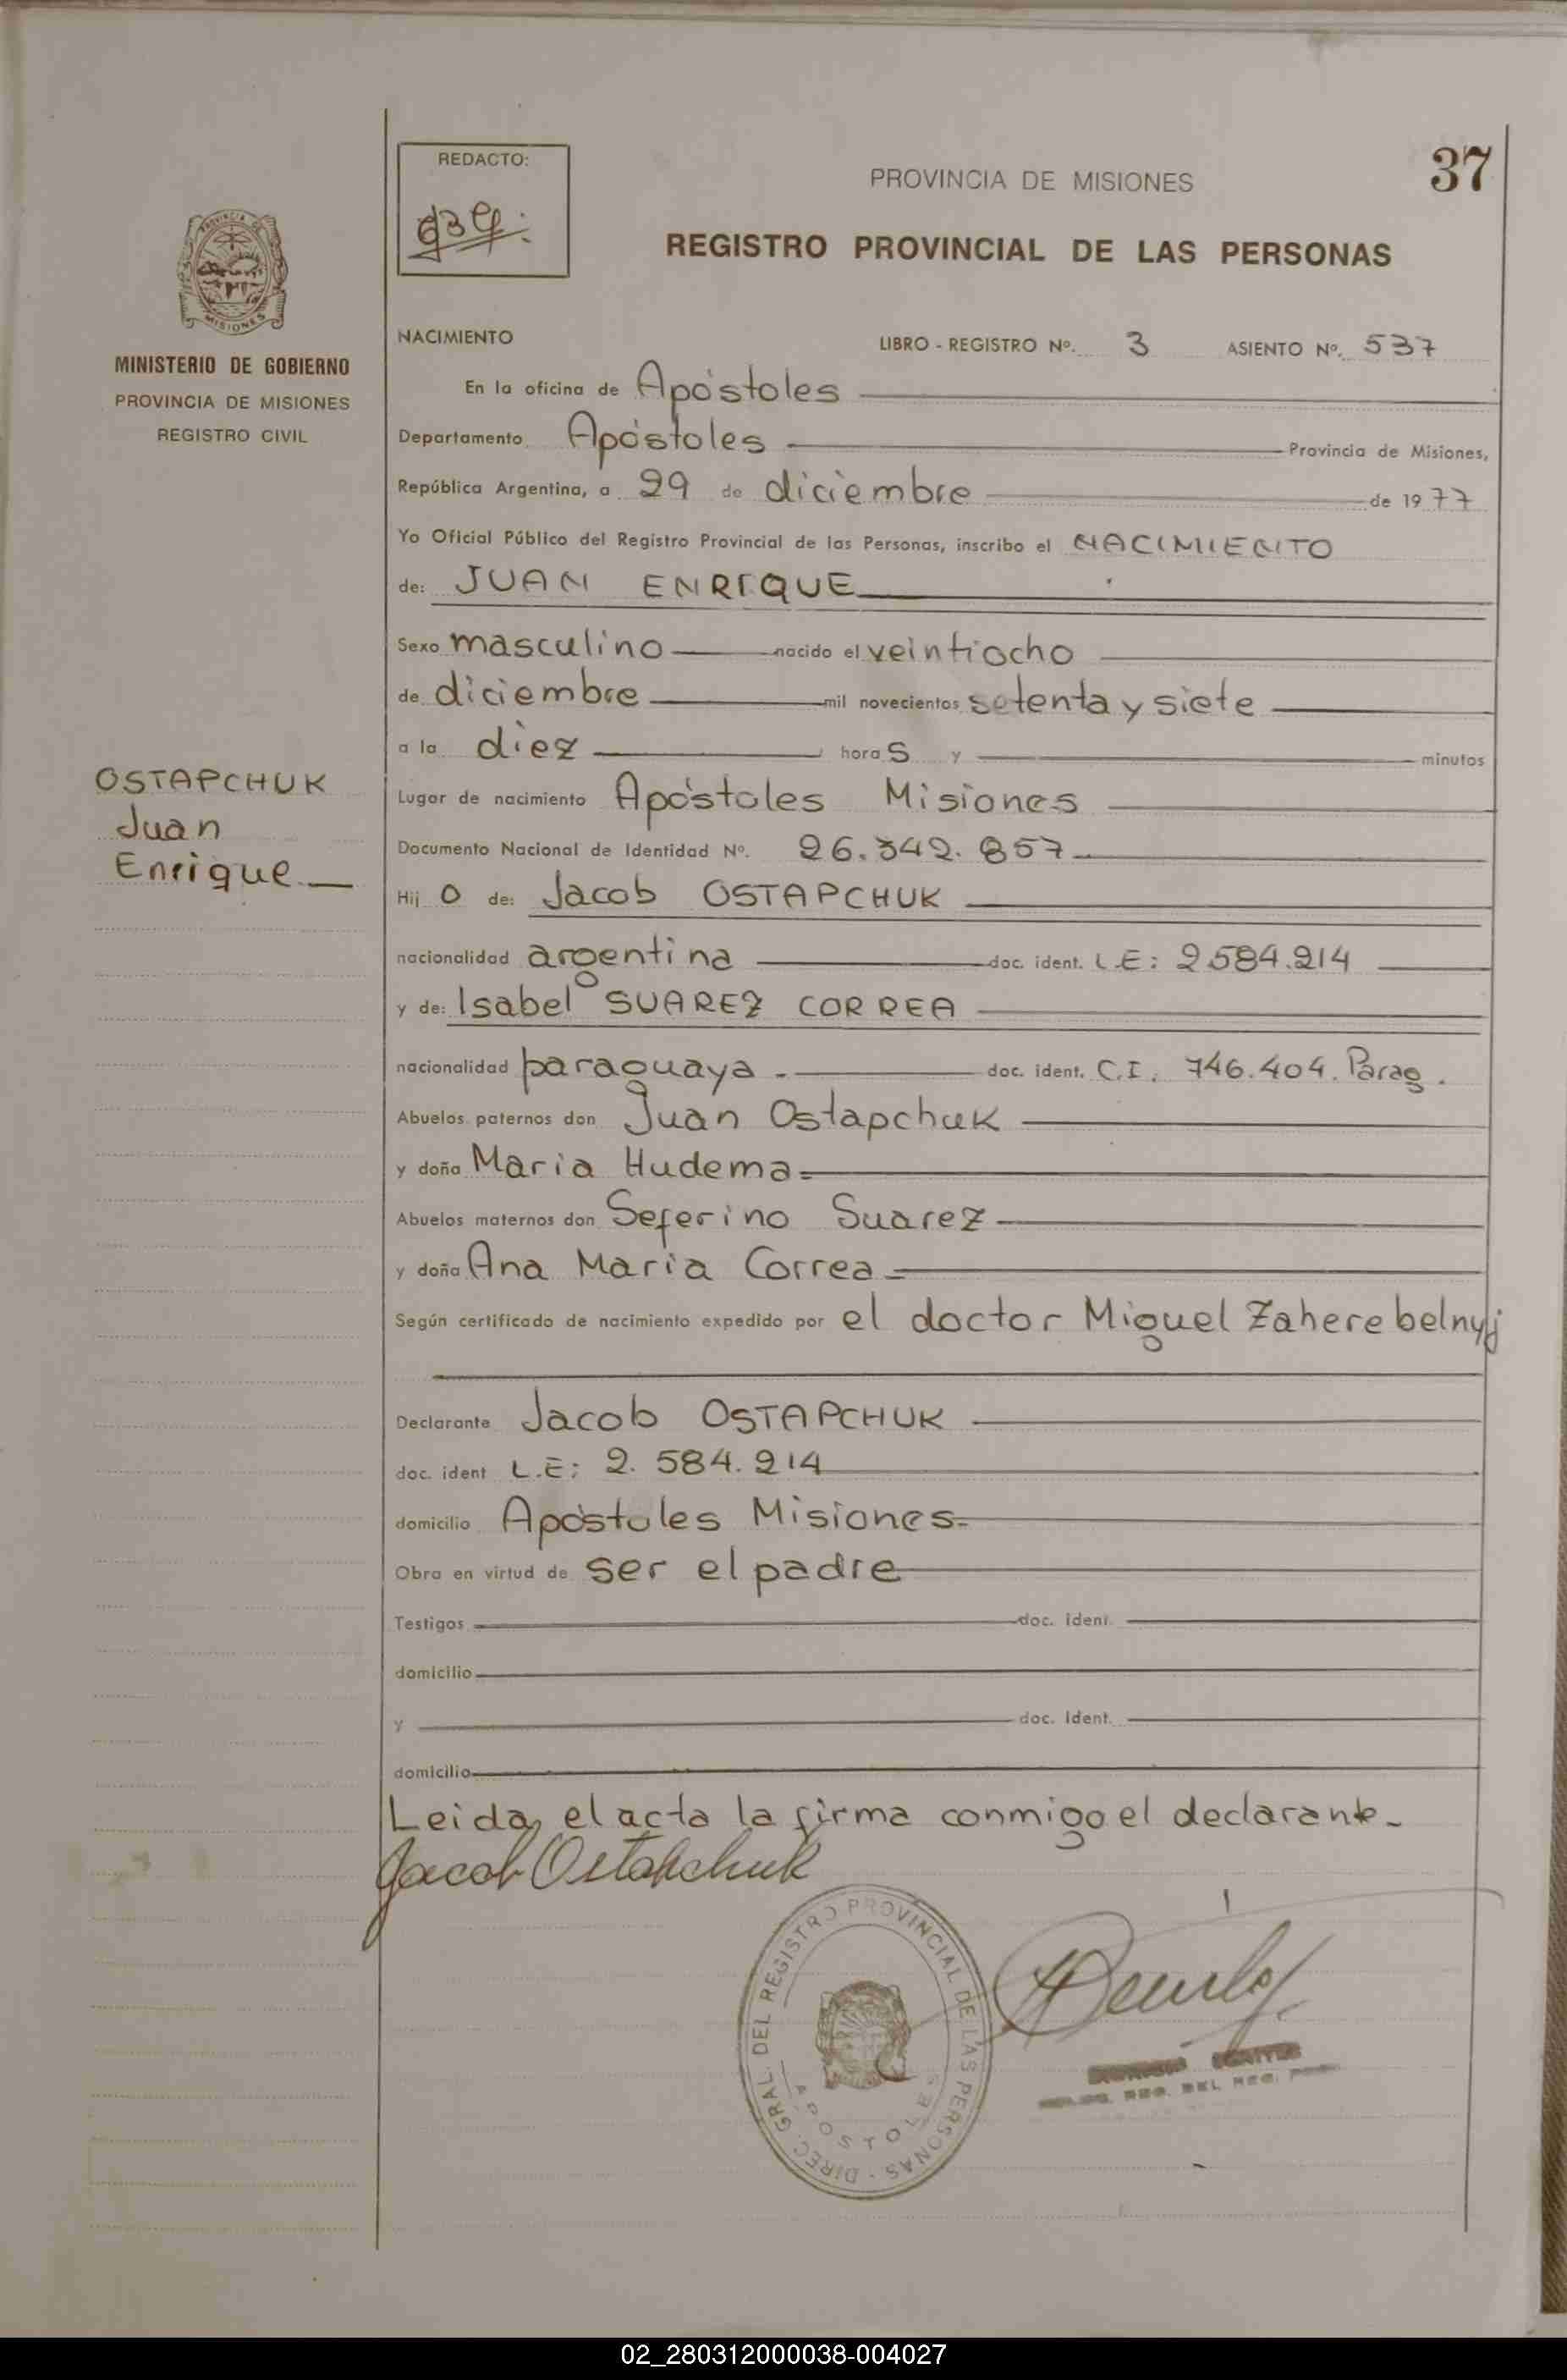 37
REDACTO:
PROVINCIA DE MISIONES
REGISTRO PROVINCIAL DE LAS PERSONAS
PROVINCIA DE
MISIONES
MINISTERIO DE GOBIERNO
PROVINCIA DE MISIONES
REGISTRO CIVIL
NACIMIENTO LIBRO - REGISTRO Nº. 3 ASIENTO Nº. 537
En la oficina de Apóstoles
Departamento Apóstoles Provincia de Misiones,
República Argentina, a 29 de diciembre de 1977
Yo Oficial Público del Registro Provincial de las Personas, inscribo el NACIMIENTO
de: JUAN ENRIQUE
Sexo masculino nacido el veintiocho
de diciembre mil novecientos setenta y siete
a la diez horas y minutos
OSTAPCHUK
Juan
Enrique
Lugar de nacimiento Apóstoles Misiones
Documento Nacional de Identidad Nº. 26.342.857
Hijo de: Jacob OSTAPCHUK
nacionalidad argentina doc. ident. L.E: 2584.214
y de: Isabel SUAREZ CORREA
nacionalidad paraguaya.- doc. ident. C.I. 746.404. Parag.
Abuelos paternos don Juan Ostapchuk
y doña Maria Hudema
Abuelos maternos don Seferino Suarez
y doña Ana Maria Correa
Según certificado de nacimiento expedido por el doctor Miguel Zaherebelnyj
Declarante Jacob OSTAPCHUK
doc. ident L.E: 2.584.214
domicilio Apóstoles Misiones
Obra en virtud de ser el padre
Testigos doc. ident.
domicilio
y doc. Ident.
domicilio
Leida el acta la firma conmigo el declarante.-
Jacob Ostapchuk
DIREC. GRAL. DEL REGISTRO PROVINCIAL DE LAS PERSONAS -
APOSTOLES
02_280312000038-004027